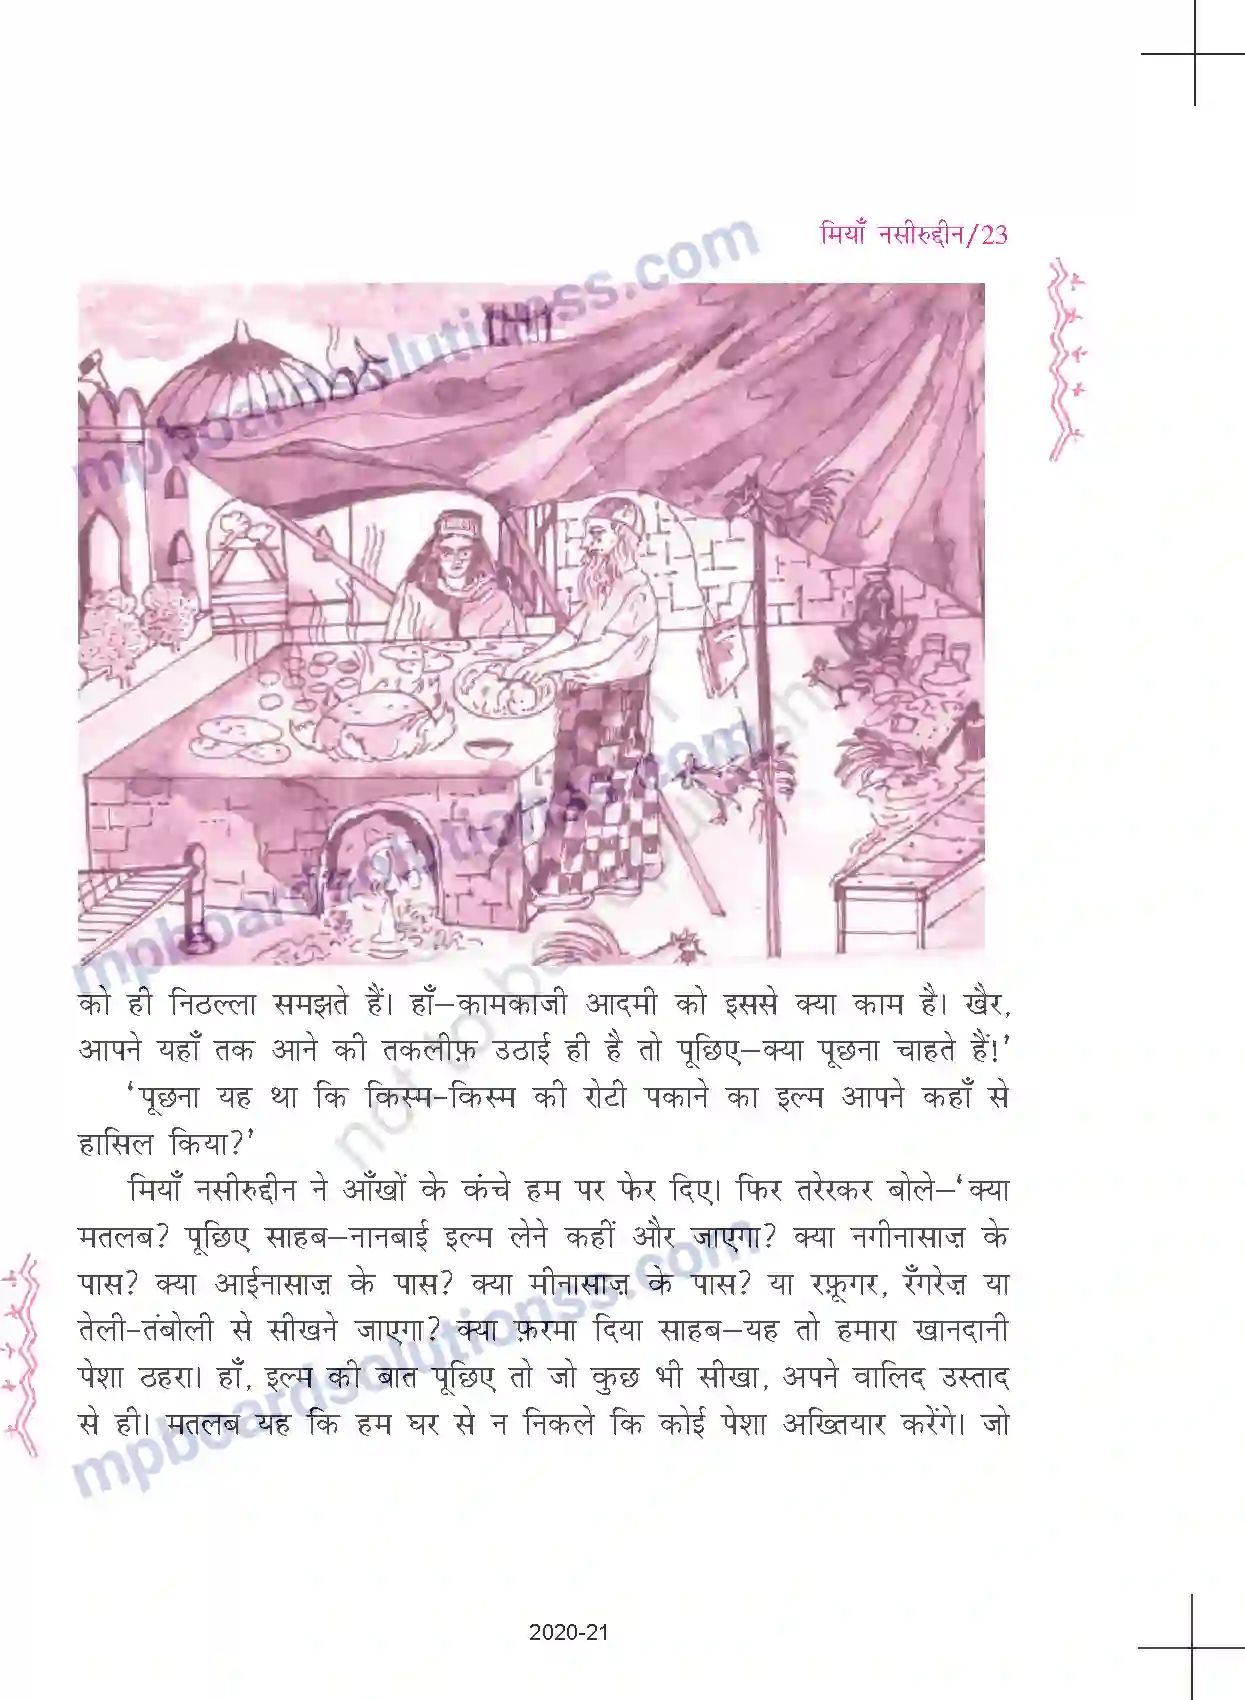 मियाँ नसीरुद्दीन/23
को ही निठल्ला समझते हैं। हाँ–कामकाजी आदमी को इससे क्या काम है। खैर,
आपने यहाँ तक आने की तकलीफ़ उठाई ही है तो पूछिए–क्या पूछना चाहते हैं!’
‘पूछना यह था कि किस्म-किस्म की रोटी पकाने का इल्म आपने कहाँ से
हासिल किया?’
मियाँ नसीरुद्दीन ने आँखों के कंचे हम पर फेर दिए। फिर तरेरकर बोले–‘क्या
मतलब? पूछिए साहब–नानबाई इल्म लेने कहीं और जाएगा? क्या नगीनासाज़ के
पास? क्या आईनासाज़ के पास? क्या मीनासाज़ के पास? या रफ़ूगर, रँगरेज़ या
तेली-तंबोली से सीखने जाएगा? क्या फ़रमा दिया साहब–यह तो हमारा खानदानी
पेशा ठहरा। हाँ, इल्म की बात पूछिए तो जो कुछ भी सीखा, अपने वालिद उस्ताद
से ही। मतलब यह कि हम घर से न निकले कि कोई पेशा अख्तियार करेंगे। जो
2020-21
mpboardsolutionss.com
mpboardsolutionss.com
mpboardsolutionss.com
not to be